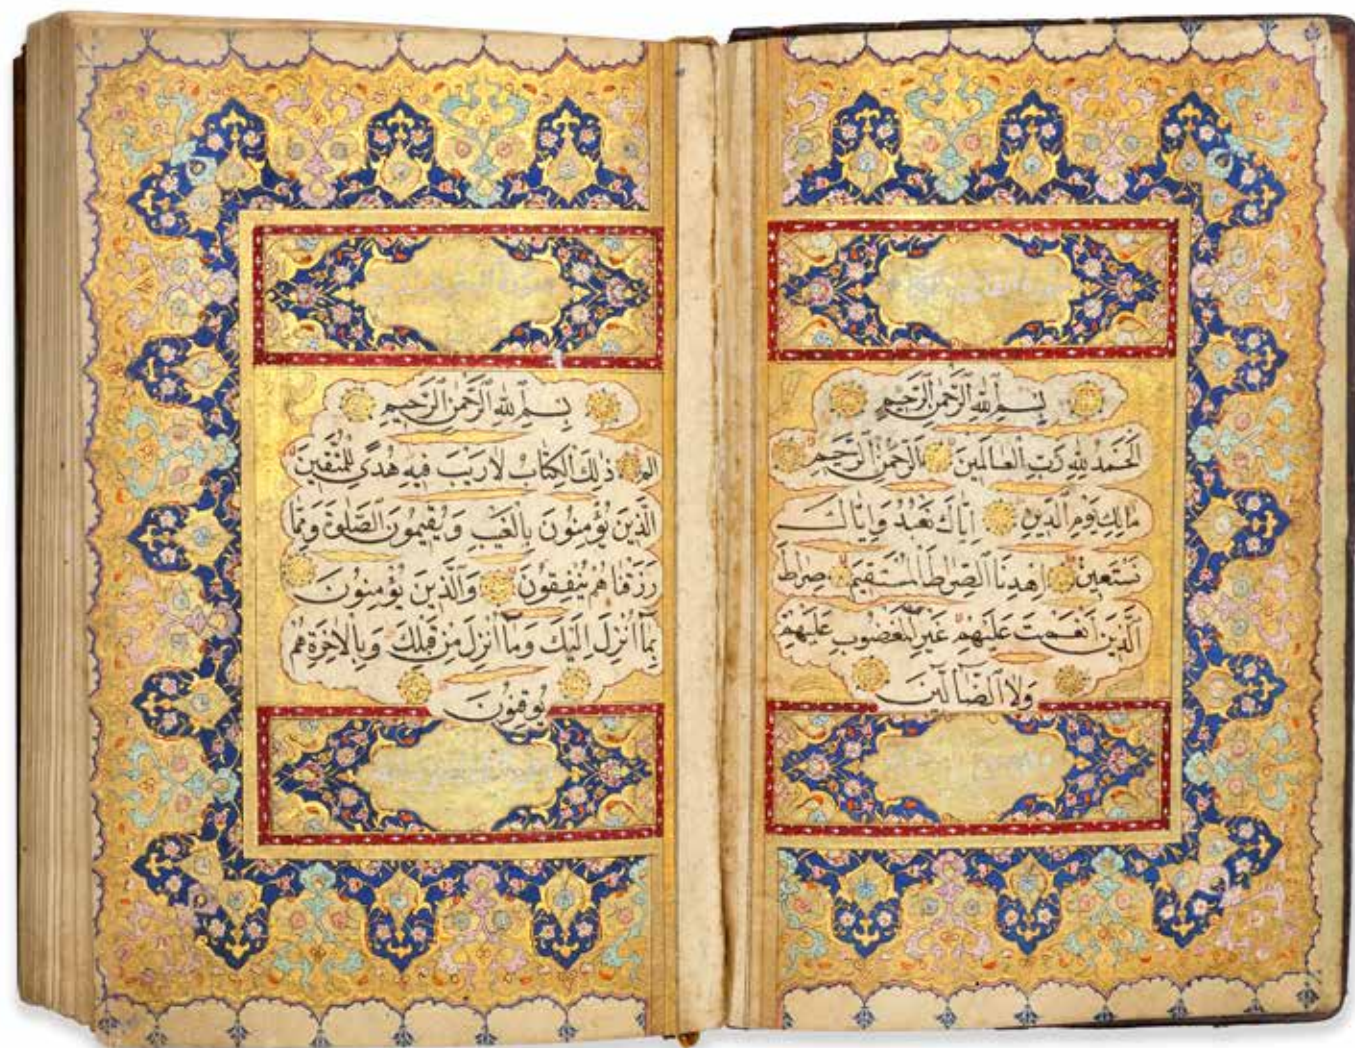 بِسْمِ اللهِ الرَّحْمٰنِ الرَّحِيمِ
اَلْحَمْدُ لِلّٰهِ رَبِّ الْعَالَمِينَ اَلرَّحْمٰنِ الرَّحِيمِ
مَالِكِ يَوْمِ الدِّينِ اِيَّاكَ نَعْبُدُ وَاِيَّاكَ
نَسْتَعِينُ اِهْدِنَا الصِّرَاطَ الْمُسْتَقِيمَ صِرَاطَ
الَّذِينَ اَنْعَمْتَ عَلَيْهِمْ غَيْرِ الْمَغْضُوبِ عَلَيْهِمْ
وَلَا الضَّالِّينَ
بِسْمِ اللهِ الرَّحْمٰنِ الرَّحِيمِ
الم ذٰلِكَ الْكِتَابُ لَا رَيْبَ فِيهِ هُدًى لِلْمُتَّقِينَ
الَّذِينَ يُؤْمِنُونَ بِالْغَيْبِ وَيُقِيمُونَ الصَّلٰوةَ وَمِمَّا
رَزَقْنَاهُمْ يُنْفِقُونَ وَالَّذِينَ يُؤْمِنُونَ
بِمَا اُنْزِلَ اِلَيْكَ وَمَا اُنْزِلَ مِنْ قَبْلِكَ وَبِالْاٰخِرَةِ هُمْ
يُوقِنُونَ